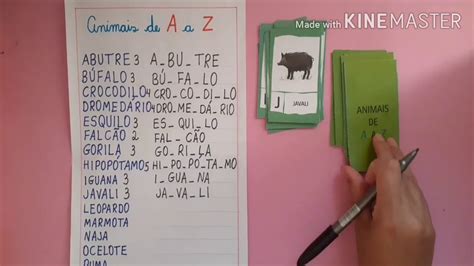 Made with KINEMASTER
Animais de A a Z
ABUTRE 3 A_BU_TRE
BÚFALO 3 BÚ_FA_LO
CROCODILO 4 CRO_CO_DI_LO
DROMEDÁRIO 4 DRO_ME_DÁ_RIO
ESQUILO 3 ES_QUI_LO
FALCÃO 2 FAL_CÃO
GORILA 3 GO_RI_LA
HIPOPÓTAMO 5 HI_PO_PÓ_TA_MO
IGUANA 3 I_GUA_NA
JAVALI 3 JA_VA_LI
LEOPARDO
MARMOTA
NAJA
OCELOTE
PUMA
J JAVALI
ANIMAIS
DE
A a Z